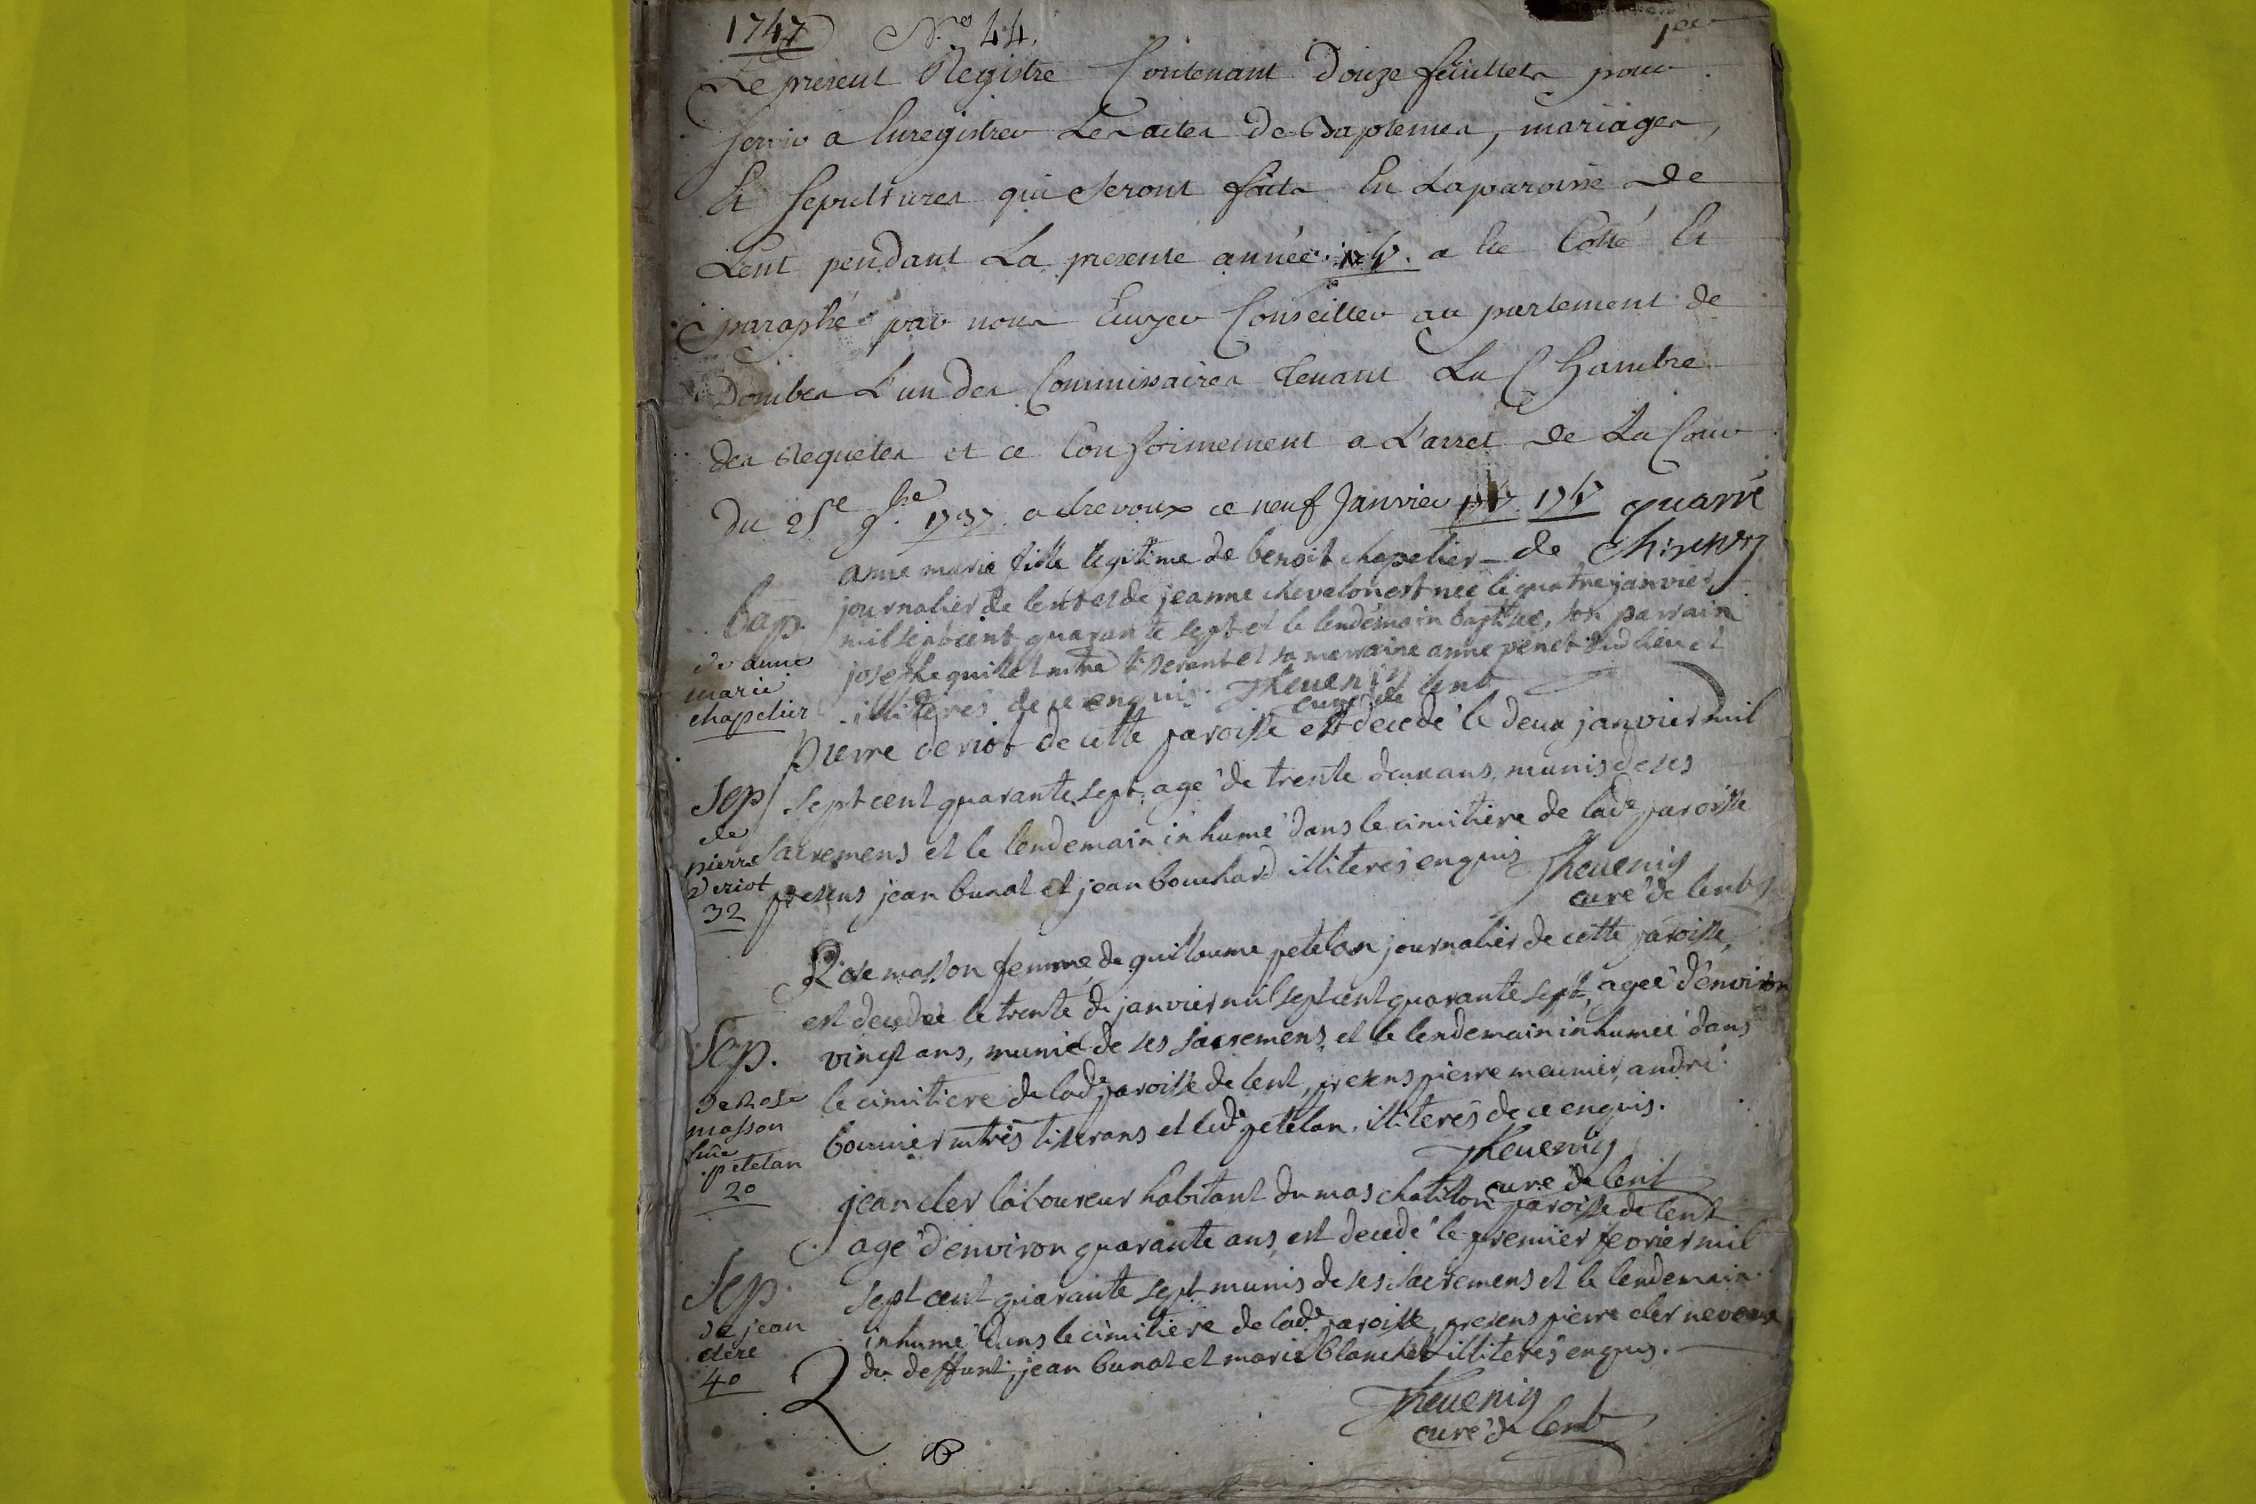 1747 N.º 44. 1er
Le present Registre Contenant Douze feüillets pour
servir a Enregistrer Les actes de Baptemes, mariages,
Et Sepultures qui Seront faits En La paroisse de
Lent pendant La presente année 1747. a Eté Cotté Et
paraphé par nous Ecuyer Conseiller au parlement de
Dombes L'un des Commissaires tenant La Chambre
des Requetes et ce Conformement a L'arret de La Cour
du 25e 9bre 1737. a trevoux ce neuf Janvier 1747 quarré
de
anne marie fille legitime de benoit chapelier
journalier de lent et de jeanne chevalon est neé le quatre janvier
mil sept cent quarante sept et le lendemain baptiseé, son parrain
josephe guillet mtre tiserant et sa marraine anne penet dud lieu et
illiterés de ce enquis. Thevenin
curé de lent
bap.
de anne
marie
chapelier
pierre deriot de cette paroisse est decedé le deux janvier mil
sept cent quarante sept, agé de trente deux ans, munis de ses
sacremens et le lendemain inhumé dans le cimitiere de lade paroisse
presens jean bunat et jean bouchard illiterés enquis Thevenin
curé de lent
Sep
de
pierre
deriot
32
Rose masson femme de guillaume petelan journalier de cette paroisse,
est decedeé le trente de janvier mil sept cent quarante sept, ageé d'environ
vingt ans, munie de ses sacremens et le lendemain inhumeé dans
le cimitiere de lade paroisse de lent, presens pierre meunier, andré
bournier mtres tiserans et led petelan, illiterés de ce enquis.
Thevenin
curé de lent
Sep.
de Rose
masson
fme
petelan
20
jean cler laboureur habitant du mas chatillon paroisse de lent
agé d'environ quarante ans, est decedé le premier fevrier mil
sept cent quarante sept munis de ses sacremens et le lendemain
inhumé dans le cimitiere de lade paroisse, presens pierre cler neveux
du deffunt, jean bunat et marie blanchet illiterés enquis.
Thevenin
curé de lent
Sep.
de jean
clere
40